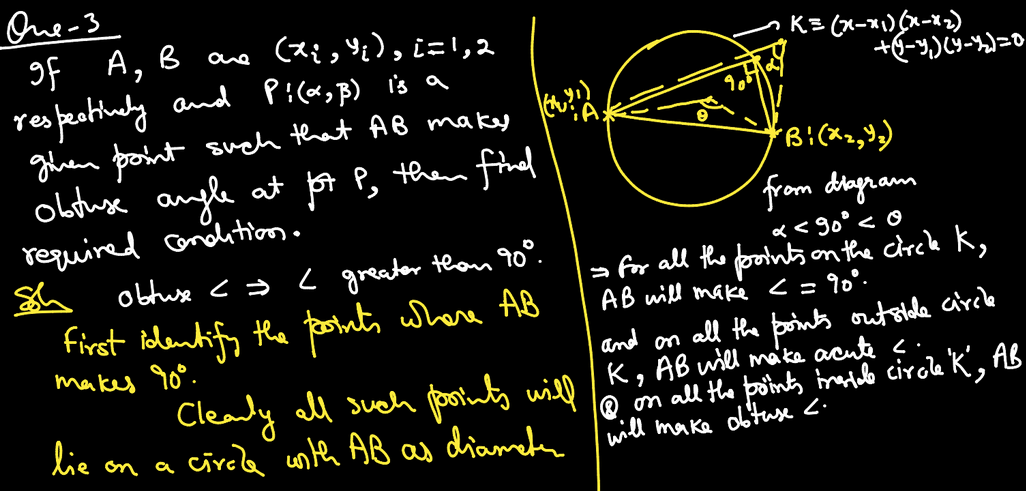 Que-3
If A, B are (xi, yi), i=1,2
respectively and P:(α,β) is a
given point such that AB makes
obtuse angle at pt P, then find
required condition.
Soln obtuse ∠ ⇒ ∠ greater than 90°.
First identify the points where AB
makes 90°.
Clearly all such points will
lie on a circle with AB as diameter
K ≡ (x-x1)(x-x2)
+(y-y1)(y-y2)=0
α
90°
(x1,y1)
:A
θ
B:(x2,y2)
from diagram
α < 90° < θ
⇒ for all the points on the circle K,
AB will make ∠ = 90°.
and on all the points outside circle
K, AB will make acute ∠.
& on all the points inside circle 'K', AB
will make obtuse ∠.